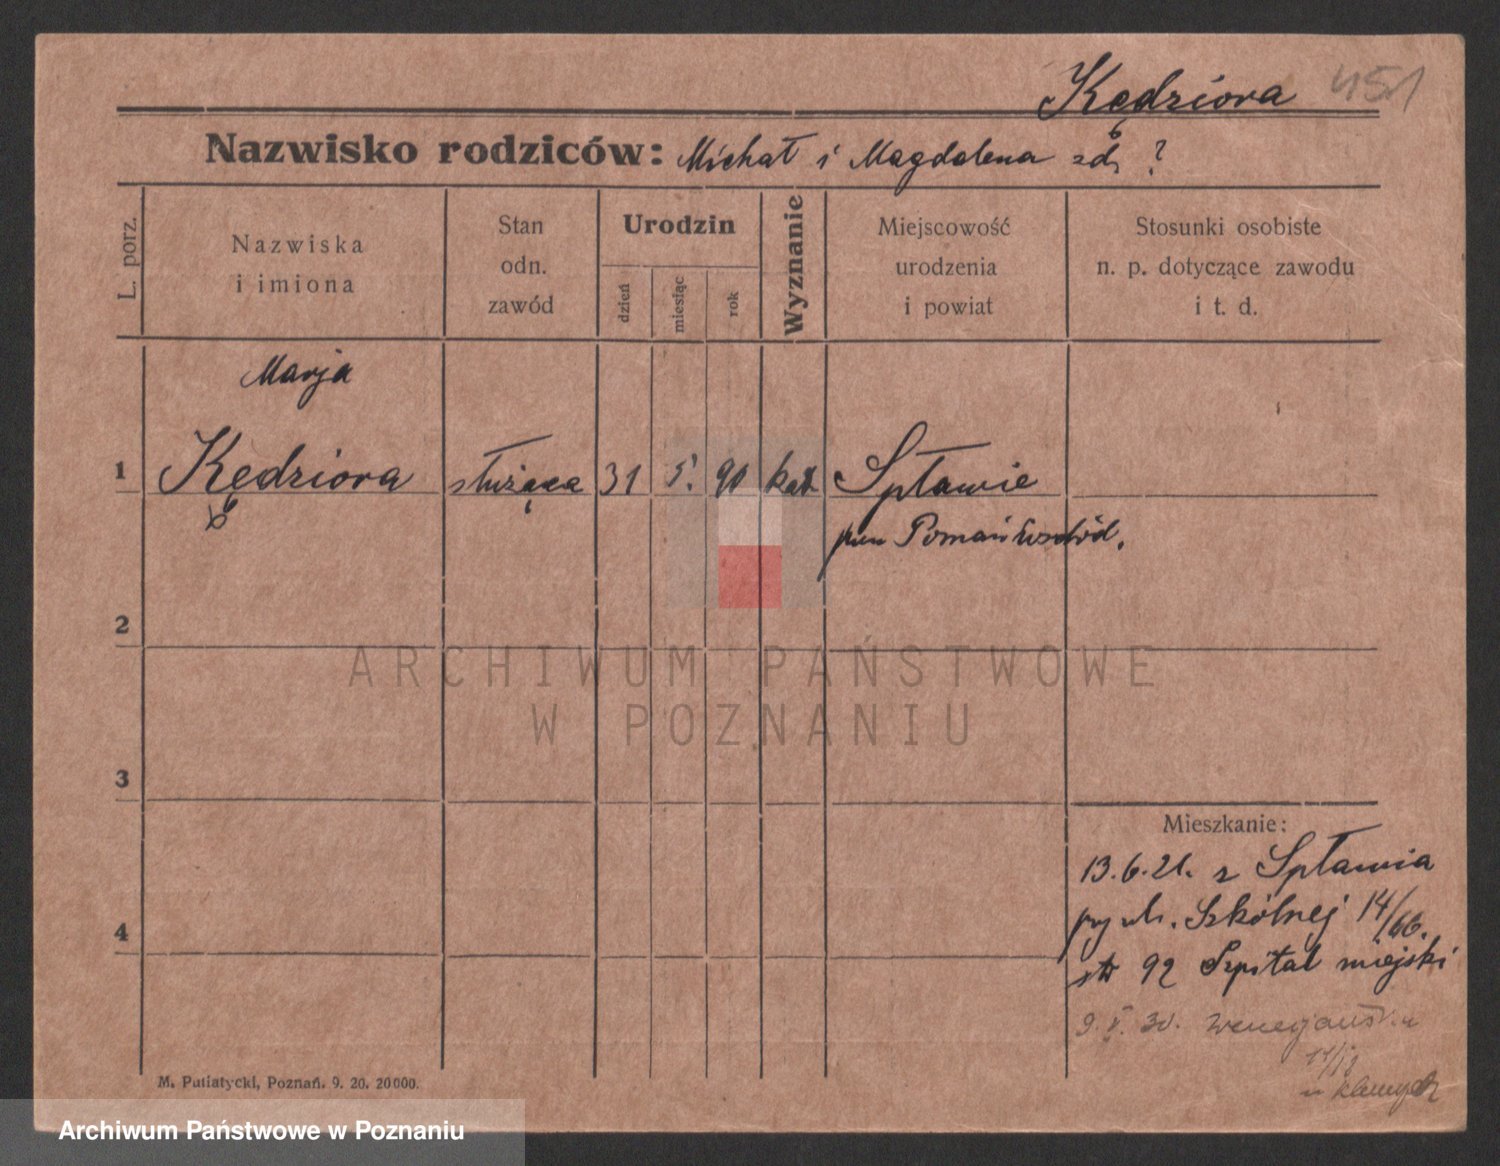 Kędziora 451
Nazwisko rodziców: Michał i Magdalena zd. ?
L. porz.
Nazwiska
i imiona
Stan
odn.
zawód
Urodzin
dzień
miesiąc
rok
Wyznanie
Miejscowość
urodzenia
i powiat
Stosunki osobiste
n. p. dotyczące zawodu
i t. d.
Marja
1 Kędziora służąca 31 5. 90 kat Spławie
pow Poznań Wschód.
2
3
4
Mieszkanie:
13.6.21. z Spławia
przy ul. Szkólnej 14/66.
92 Szpital miejski
9. V. 30.
M. Putiatycki, Poznań. 9. 20. 20000.
ARCHIWUM PAŃSTWOWE
W POZNANIU
Archiwum Państwowe w Poznaniu